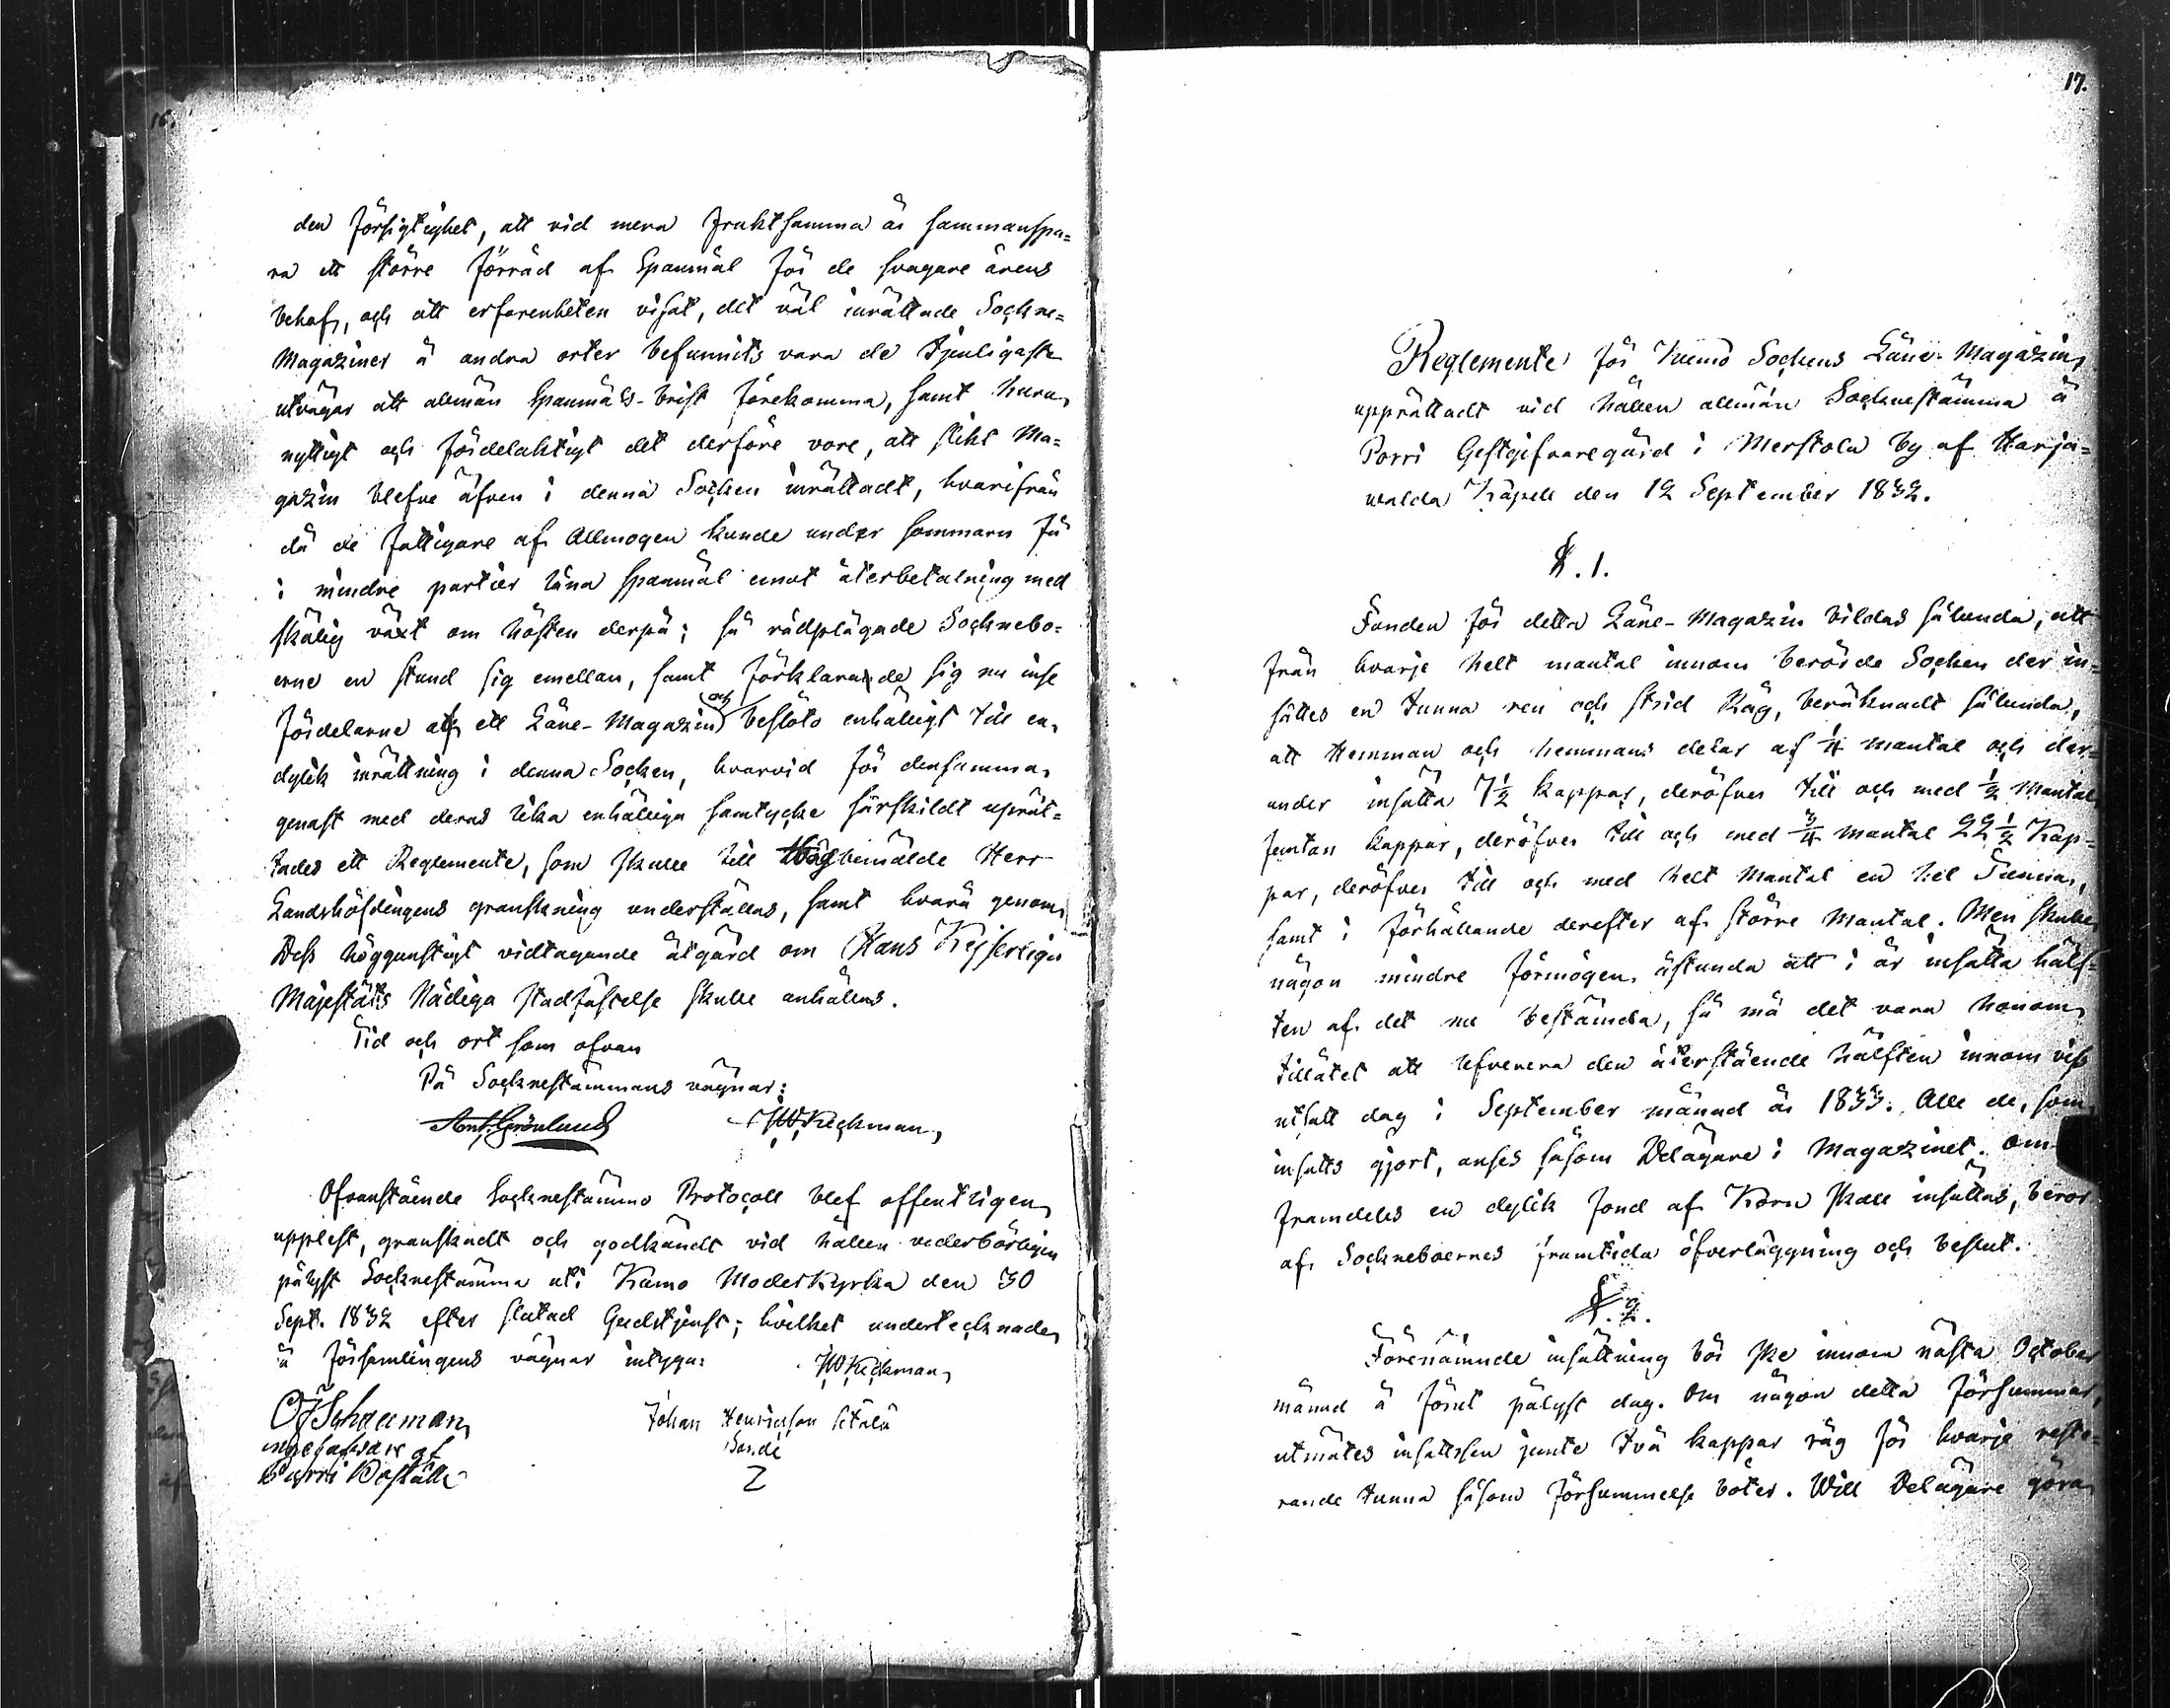 16.
den försigtighet, att vid mera fruktsamma år sammanspa=
ra ett större förråd af Spanmål för de svagare årens
behof, och att erfarenheten visat, det väl inrättade Sockne=
Magaziner å andra orter befunnits vara de tjenligaste
utvägar att allmän Spanmåls-brist förekomma, samt huru
nyttigt och fördelaktigt det derföre vore, att slikt Ma=
gazin blefve äfven i denna Socken inrättadt, hvarifrån
då de fattigare af Allmogen kunde under sommaren få
i mindre partier låna spanmål emot återbetalning med
skälig växt om hösten derpå; så rådplägade Socknebo=
erne en stund sig emellan, samt förklarade sig nu inse
fördelarne af ett Låne-Magazin och beslöto enhälligt till en
dylik inrättning i denna Socken, hvarvid för densamma
genast med deras lika enhälliga samtycke särskildt uprät=
tades ett Reglemente, som skulle till Högbemälde Herr
Landshöfdingens granskning underställas, samt hvarå genom
Dess höggunstigt vidtagande åtgärd om Hans Kejserliga
Majestäts Nådiga stadfästelse skulle anhållas.
Tid och ort som ofvan
På Socknestämmans vägnar:
Ant. Grönlund JW Keckman
Ofvanstående Socknestämmo Protocoll blef offentligen
upplest, granskadt och godkändt vid hållen vederbörligen
pålyst Socknestämma uti Kumo Moderkyrka den 30
Sept. 1832 efter slutad Gudstjenst; hvilket undertecknade
å församlingens vägnar intyga: JW Keckman
OJ Schauman Johan Henricsson
af Bonde
Purri Boställe
17.
Reglemente för Kumo Sockens Låne-Magazin
upprättadt vid hållen allmän Socknestämma å
Porri Gestgifvaregård i Merstola by af Harja=
walda Kapell den 12 September 1832.
§. 1.
Fonden för detta Låne-Magazin bildas sålunda, att
från hvarje helt mantal innom berörde Socken der in=
sättes en tunna ren och strid Råg, beräknadt sålunda,
att Hemman och hemmans delar af 1/4 mantal och der=
under insätta 7 1/2 kappar, deröfver till och med 1/2 Mantal
femton kappar, deröfver till och med 3/4 mantal 22 1/2 Kap=
par, deröfver till och med helt Mantal en hel Tunna,
samt i förhållande derefter af större Mantal. Men skulle
någon mindre förmögen åstunda att i år insätta hälf=
ten af det nu bestämda, så må det vara honom
tillåtet att lefverera den återstående hälften innom viss
utsatt dag i September månad år 1833. Alle de, som
insatts gjort, anses såsom Delägare i Magazinet. Om
framdeles en dylik fond af Korn skall insättas, beror
af Sockneboernes framtida öfverläggning och beslut.
§. 2.
Förenämnde insättning bör ske innom nästa October
månad å förut pålyst dag. Om någon detta försummar,
utmätes insattsen jemte två kappar råg för hvarje reste=
rande tunna såsom försummelse böter. Will Delägare göra